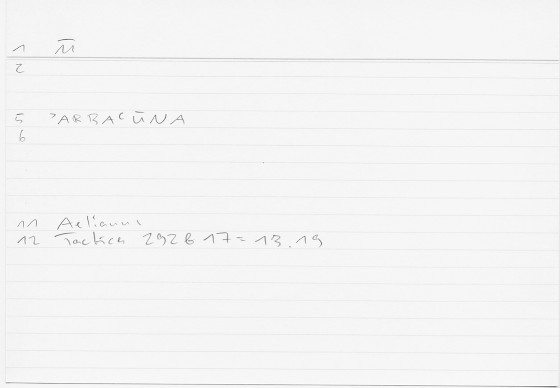 1 M̅
2
5 ʾARBAʿŪNA
6
11 Aelianus
12 Tactica 292 b 17 = 13.19